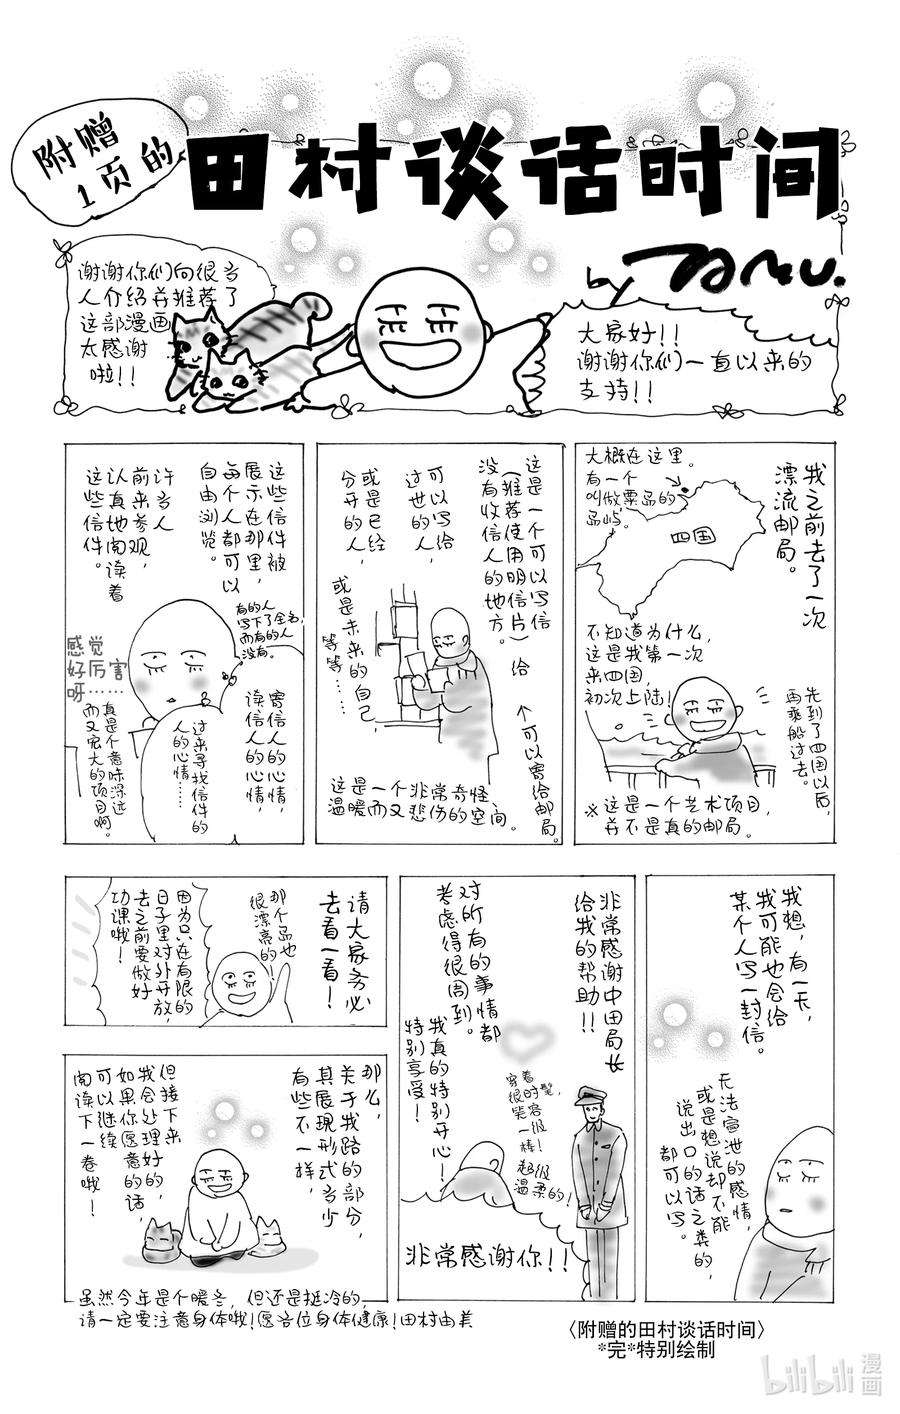 附赠
1页的
田村谈话时间
by Tamu.
谢谢你们向很多
人介绍并推荐了
这部漫画
太感谢
啦!!
大家好!!
谢谢你们一直以来的
支持!!
我之前去了一次
漂流邮局。
大概在这里。
有一个
叫做粟岛的
岛屿。
四国
不知道为什么,
这是我第一次
来四国,
初次上陆!
先到了四国以后,
再乘船过去。
※这是一个艺术项目,
并不是真的邮局。
这是一个可以写信给
(推荐使用明信片)
没有收信人的地方。
↑可以寄给邮局。
可以写给
过世的人,
或是已经
分开的人,
或是未来的自己
等等……
这是一个非常奇怪、
温暖而又悲伤的空间。
这些信件被
展示在那里,
每个人都可以
自由浏览。
许多人
前来参观,
认真地阅读着
这些信件。
有的人
写下了全名,
而有的人
没有。
寄信人的心情,
读信人的心情,
过来寻找信件的
人的心情……
感觉
好厉害
呀……
真是个意味深远
而又宏大的项目啊。
我想,有一天,
我可能也会给
某个人写一封信。
无法宣泄的感情,
或是想说却不能
说出口的话之类的,
都可以写。
非常感谢中田局长
给我的帮助!!
对所有的事情都
考虑得很周到。
我真的特别开心!
特别享受!
穿着
很时髦,
笑容
一级
棒!
超级
温柔的!
非常感谢你!!
请大家务必
去看一看!
那个岛也
很漂亮的!
因为只在有限的
日子里对外开放,
去之前要做好
功课哦!
那么,
关于我路的部分,
其展现形式多少
有些不一样,
但接下来
我会处理好的,
如果你愿意的话,
可以继续
阅读下一卷哦!
虽然今年是个暖冬,但还是挺冷的,
请一定要注意身体哦!愿各位身体健康!田村由美
〈附赠的田村谈话时间〉
*完*特别绘制
bilibili 漫画